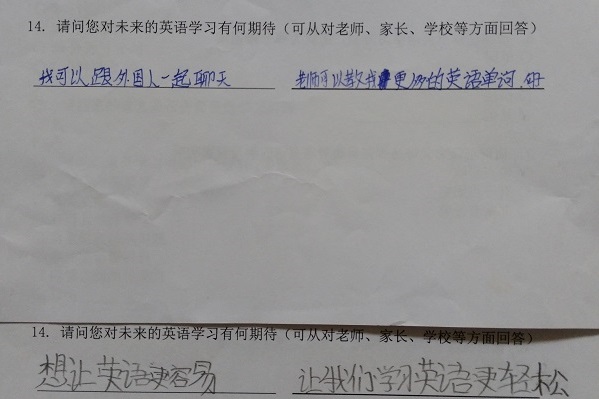 14. 请问您对未来的英语学习有何期待（可从对老师、家长、学校等方面回答）
我可以跟外国人一起聊天 老师可以教我更多的英语单词,
14. 请问您对未来的英语学习有何期待（可从对老师、家长、学校等方面回答）
想让英语更容易 让我们学习英语更轻松